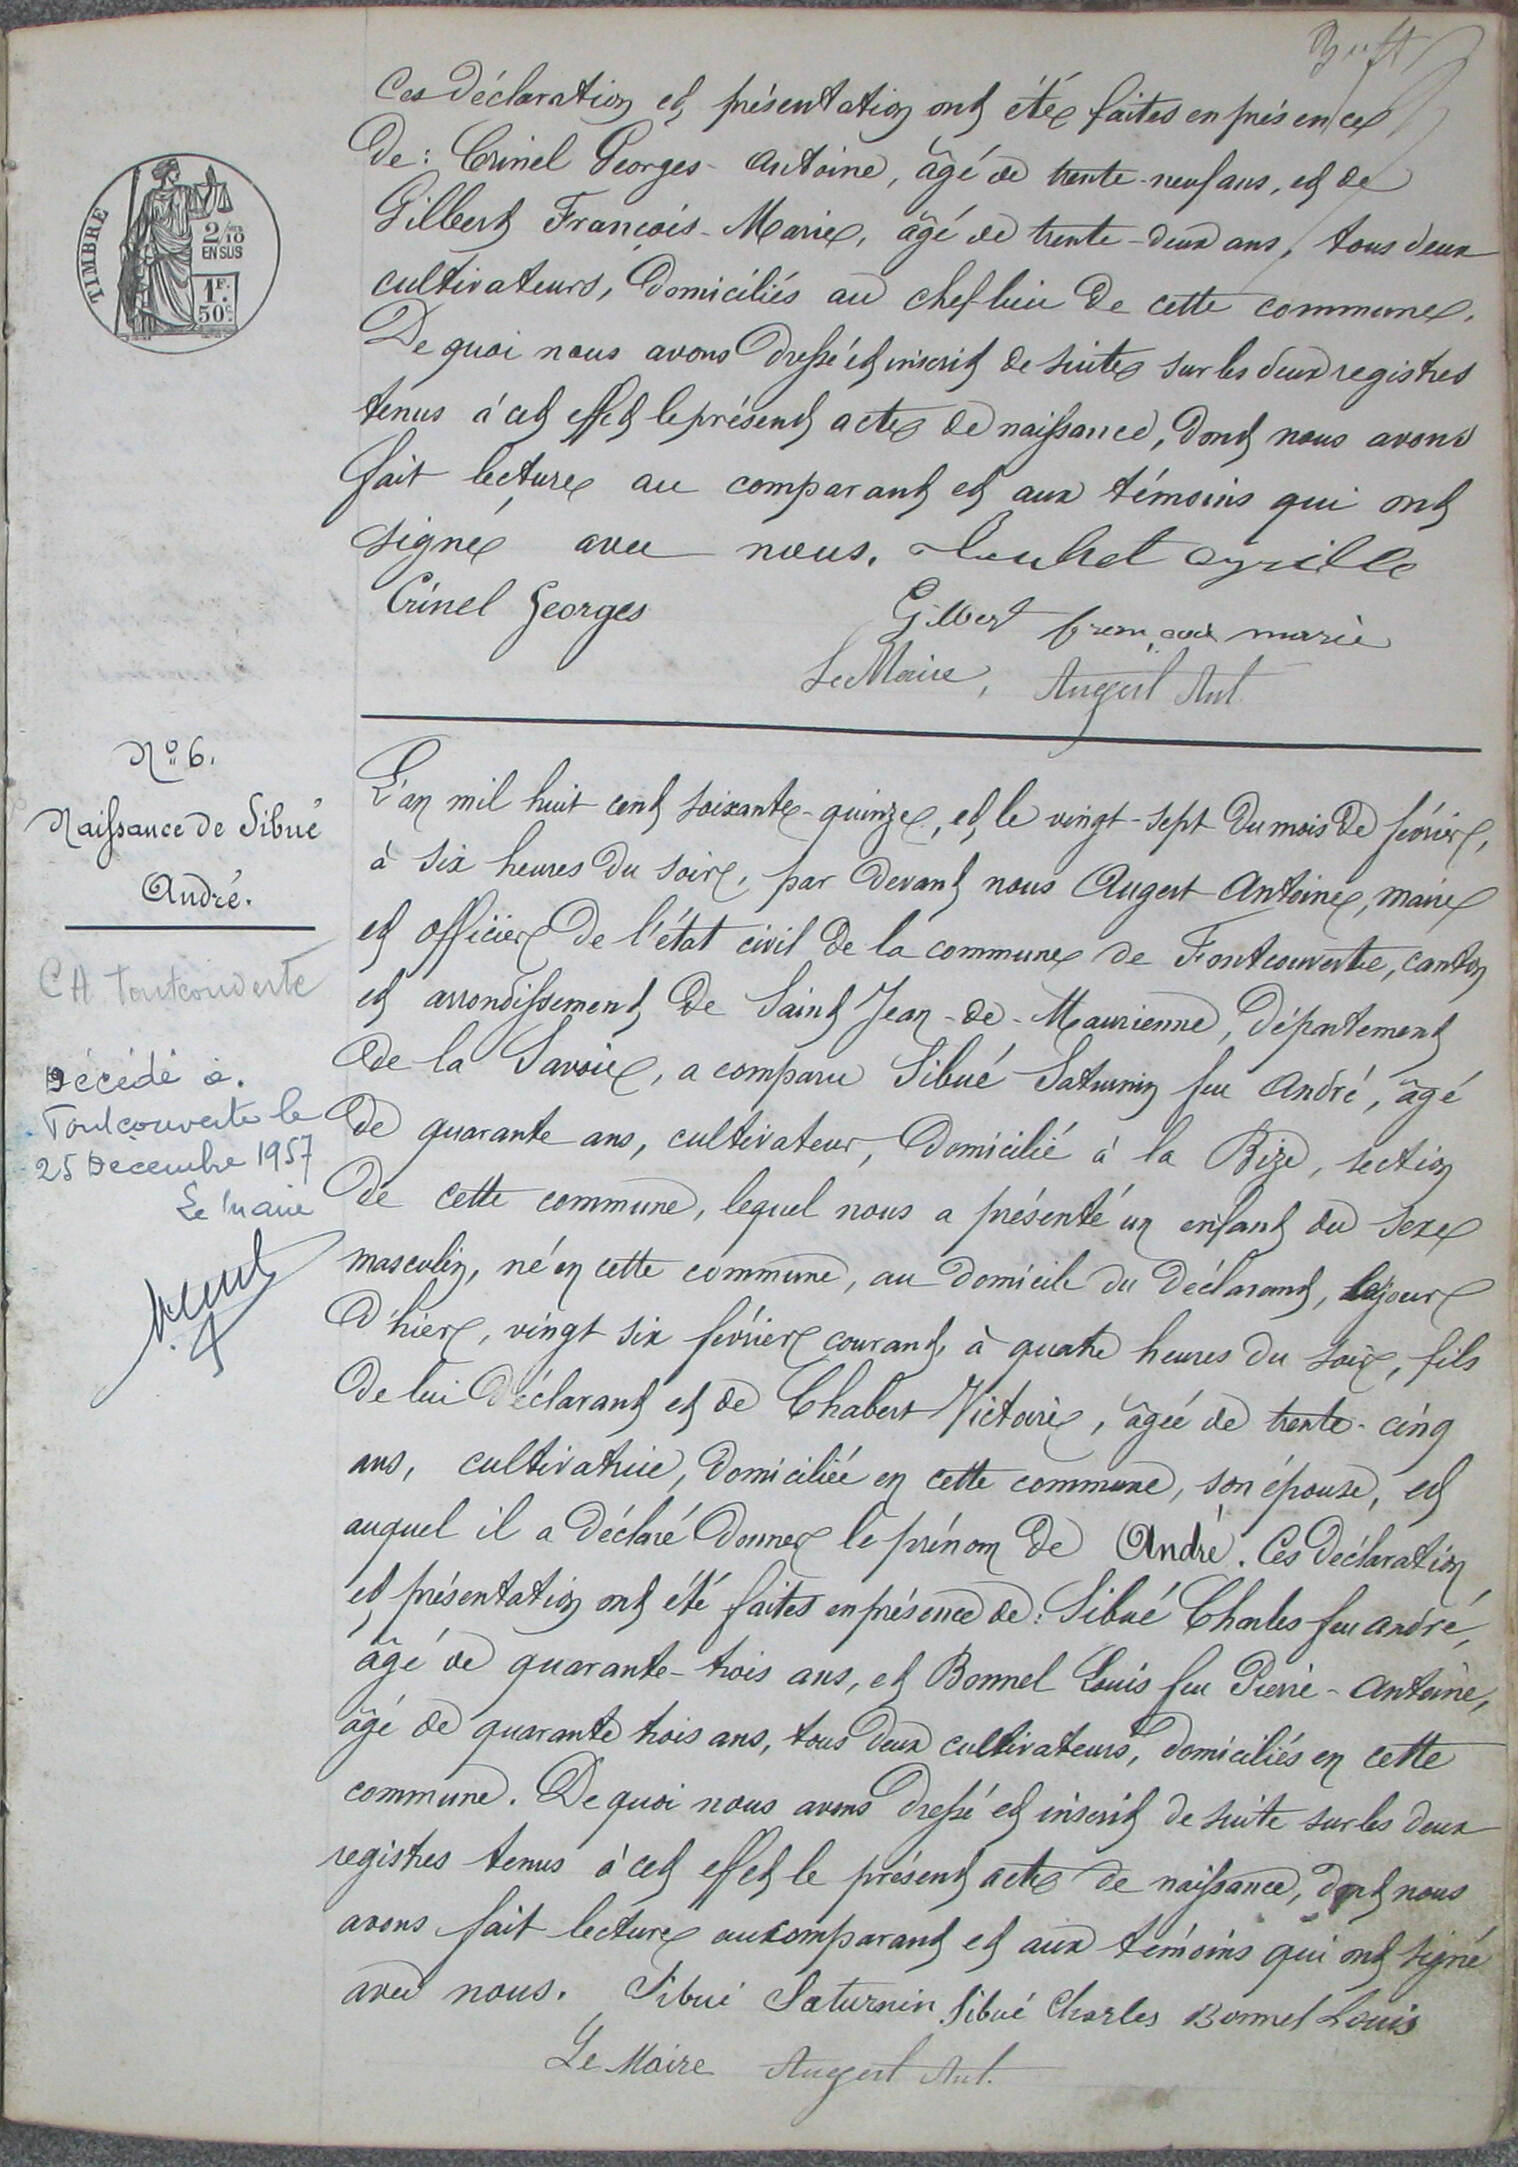 Ces déclaration et présentation ont été faites en présence
de : Crinel Georges-Antoine, âgé de trente-neuf ans, et de
Gilbert François-Marie, âgé de trente-deux ans, tous deux
cultivateurs, domiciliés au chef lieu de cette commune.
De quoi nous avons dressé et inscrit de suite sur les deux registres
tenus à cet effet le présent acte de naissance, dont nous avons
fait lecture au comparant et aux témoins qui ont
signé avec nous. cyrille
Crinel Georges
Gilbert françois marie
Le Maire, Augert Ant.
TIMBRE
2/10
EN SUS
1F.
50c.
No 6.
Naissance de Sibué
André.
CH Fontcouverte
Décédé à
Fontcouverte le
25 Décembre 1957
Le Maire
L'an mil huit cent soixante-quinze, et le vingt-sept du mois de février,
à six heures du soir, par devant nous Augert Antoine, maire
et officier de l'état civil de la commune de Fontcouverte, canton
et arrondissement de Saint Jean-de-Maurienne, département
de la Savoie, a comparu Sibué Saturnin feu André, âgé
de quarante ans, cultivateur, domicilié à la Bize, section
de cette commune, lequel nous a présenté un enfant du sexe
masculin, né en cette commune, au domicile du déclarant, le jour
d'hier, vingt six février courant, à quatre heures du soir, fils
de lui déclarant et de Chabert Victoire, âgée de trente-cinq
ans, cultivatrice, domiciliée en cette commune, son épouse, et
auquel il a déclaré donner le prénom de André. Ces déclaration
et présentation ont été faites en présence de : Sibué Charles feu André,
âgé de quarante-trois ans, et Bonnel Louis feu Pierre-Antoine,
âgé de quarante trois ans, tous deux cultivateurs, domiciliés en cette
commune. De quoi nous avons dressé et inscrit de suite sur les deux
registres tenus à cet effet le présent acte de naissance, dont nous
avons fait lecture au comparant et aux témoins qui ont signé
avec nous. Sibué Saturnin Sibué Charles Bonnel Louis
Le Maire Augert Ant.